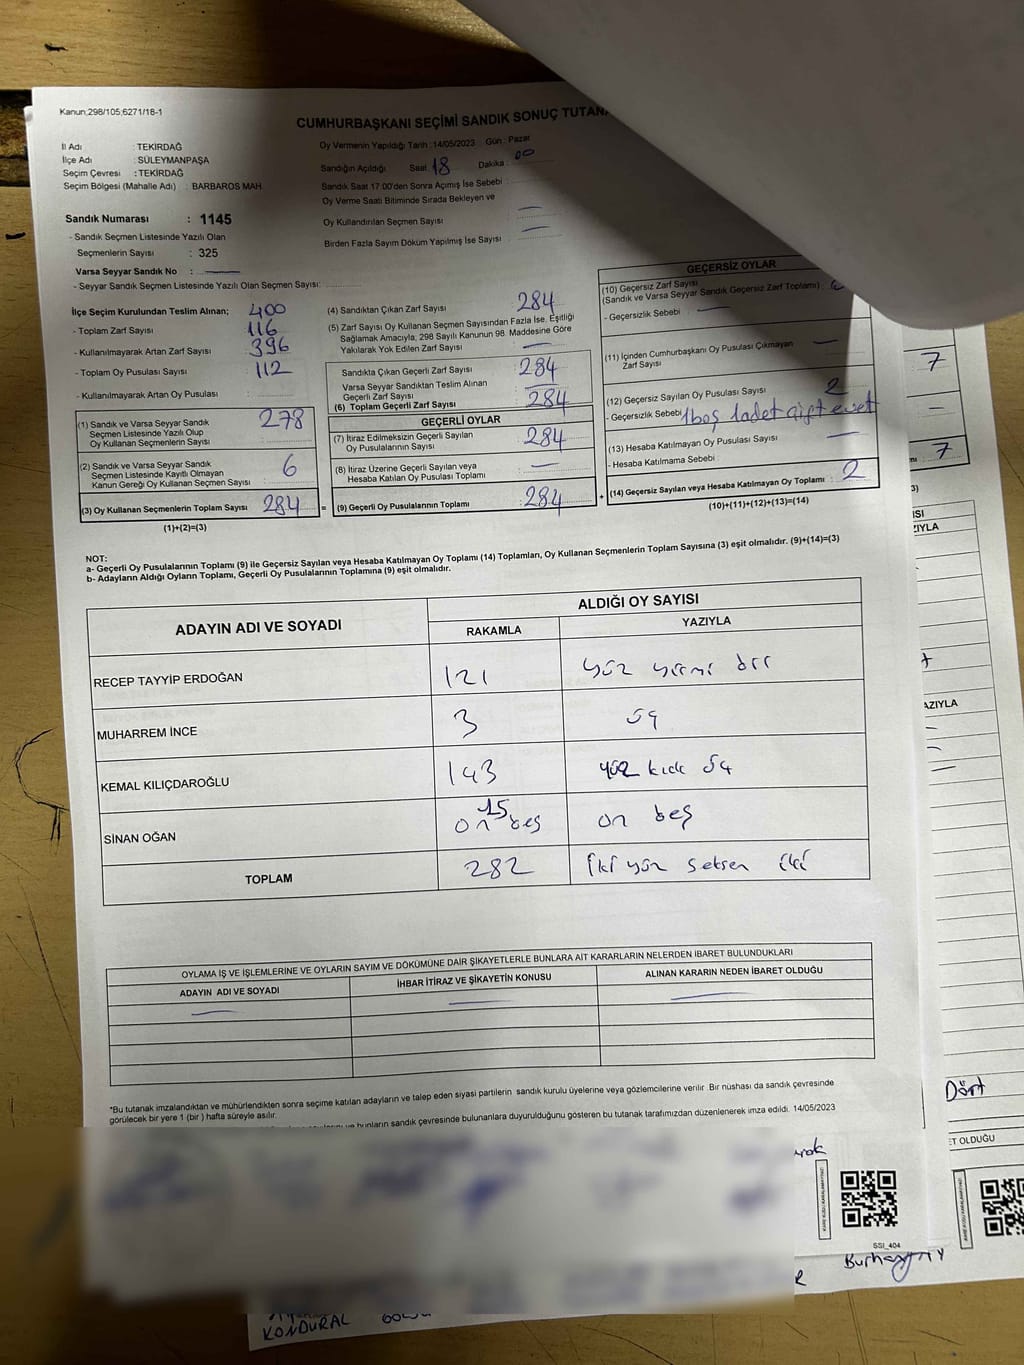 Kanun,298/105,6271/18-1
CUMHURBAŞKANI SEÇİMİ SANDIK SONUÇ
İl Adı : TEKİRDAĞ
İlçe Adı : SÜLEYMANPAŞA
Seçim Çevresi : TEKİRDAĞ
Seçim Bölgesi (Mahalle Adı) : BARBAROS MAH
Oy Vermenin Yapıldığı Tarih :14/05/2023 Gün : Pazar
Sandığın Açıldığı Saat 18 Dakika : 00
Sandık Saat 17:00'den Sonra Açılmış İse Sebebi :
Oy Verme Saati Bitiminde Sırada Bekleyen ve
Oy Kullandırılan Seçmen Sayısı : —
Birden Fazla Sayım Döküm Yapılmış İse Sayısı : —
Sandık Numarası : 1145
- Sandık Seçmen Listesinde Yazılı Olan
Seçmenlerin Sayısı : 325
Varsa Seyyar Sandık No : —
- Seyyar Sandık Seçmen Listesinde Yazılı Olan Seçmen Sayısı:
İlçe Seçim Kurulundan Teslim Alınan; 400
- Toplam Zarf Sayısı 116
- Kullanılmayarak Artan Zarf Sayısı 396
- Toplam Oy Pusulası Sayısı : 112
- Kullanılmayarak Artan Oy Pusulası
(1) Sandık ve Varsa Seyyar Sandık
Seçmen Listesinde Yazılı Olup
Oy Kullanan Seçmenlerin Sayısı 278
(2) Sandık ve Varsa Seyyar Sandık
Seçmen Listesinde Kayıtlı Olmayan
Kanun Gereği Oy Kullanan Seçmen Sayısı 6
(3) Oy Kullanan Seçmenlerin Toplam Sayısı 284 =
(1)+(2)=(3)
(4) Sandıktan Çıkan Zarf Sayısı 284
(5) Zarf Sayısı Oy Kullanan Seçmen Sayısından Fazla İse, Eşitliği
Sağlamak Amacıyla, 298 Sayılı Kanunun 98. Maddesine Göre
Yakılarak Yok Edilen Zarf Sayısı —
Sandıkta Çıkan Geçerli Zarf Sayısı : 284
Varsa Seyyar Sandıktan Teslim Alınan
Geçerli Zarf Sayısı —
(6) Toplam Geçerli Zarf Sayısı : 284
GEÇERLİ OYLAR
(7) İtiraz Edilmeksizin Geçerli Sayılan
Oy Pusulalarının Sayısı : 284
(8) İtiraz Üzerine Geçerli Sayılan veya
Hesaba Katılan Oy Pusulası Toplamı : —
(9) Geçerli Oy Pusulalarının Toplamı : 284 +
GEÇERSİZ OYLAR
(10) Geçersiz Zarf Sayısı
(Sandık ve Varsa Seyyar Sandık Geçersiz Zarf Toplamı) :
- Geçersizlik Sebebi : —
(11) İçinden Cumhurbaşkanı Oy Pusulası Çıkmayan
Zarf Sayısı —
(12) Geçersiz Sayılan Oy Pusulası Sayısı : 2
- Geçersizlik Sebebi 1 boş 1 adet çift evet
(13) Hesaba Katılmayan Oy Pusulası Sayısı : —
- Hesaba Katılmama Sebebi :
(14) Geçersiz Sayılan veya Hesaba Katılmayan Oy Toplamı : 2
(10)+(11)+(12)+(13)=(14)
NOT:
a- Geçerli Oy Pusulalarının Toplamı (9) ile Geçersiz Sayılan veya Hesaba Katılmayan Oy Toplamı (14) Toplamları, Oy Kullanan Seçmenlerin Toplam Sayısına (3) eşit olmalıdır. (9)+(14)=(3)
b- Adayların Aldığı Oyların Toplamı, Geçerli Oy Pusulalarının Toplamına (9) eşit olmalıdır.
ADAYIN ADI VE SOYADI ALDIĞI OY SAYISI
RAKAMLA YAZIYLA
RECEP TAYYİP ERDOĞAN 121 yüz yirmi bir
MUHARREM İNCE 3 üç
KEMAL KILIÇDAROĞLU 143 yüz kırk üç
SİNAN OĞAN 15 on beş on beş
TOPLAM 282 iki yüz seksen iki
OYLAMA İŞ VE İŞLEMLERİNE VE OYLARIN SAYIM VE DÖKÜMÜNE DAİR ŞİKAYETLERLE BUNLARA AİT KARARLARIN NELERDEN İBARET BULUNDUKLARI
ADAYIN ADI VE SOYADI İHBAR İTİRAZ VE ŞİKAYETİN KONUSU ALINAN KARARIN NEDEN İBARET OLDUĞU
— — —
*Bu tutanak imzalandıktan ve mühürlendikten sonra seçime katılan adayların ve talep eden siyasi partilerin sandık kurulu üyelerine veya gözlemcilerine verilir .Bir nüshası da sandık çevresinde
görülecek bir yere 1 (bir ) hafta süreyle asılır.
bunların sandık çevresinde bulunanlara duyurulduğunu gösteren bu tutanak tarafımızdan düzenlenerek imza edildi. 14/05/2023
SSI_404
KONDURAL
7
—
7
YAZIYLA
Dört
ET OLDUĞU